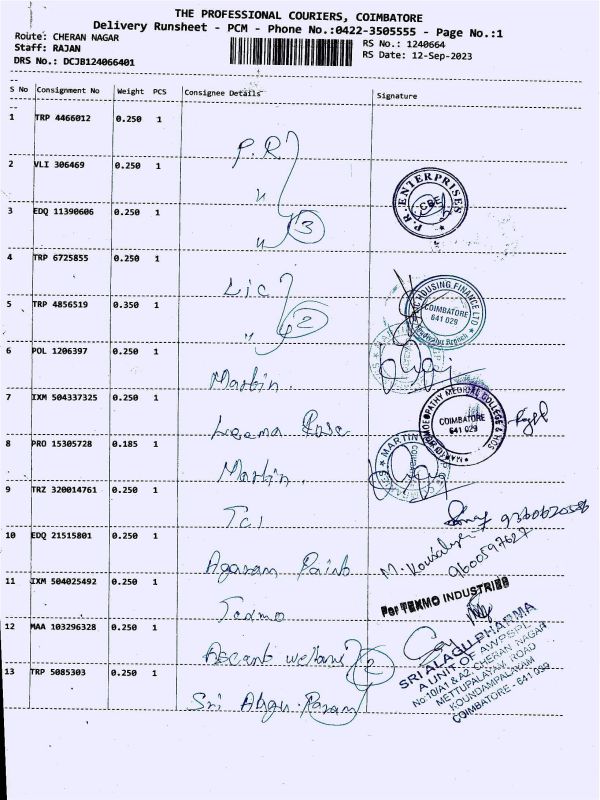 THE PROFESSIONAL COURIERS, COIMBATORE
Delivery Runsheet - PCM - Phone No.:0422-3505555 - Page No.:1
Route: CHERAN NAGAR
RS No.: 1240664
Staff: RAJAN
RS Date: 12-Sep-2023
DRS No.: DCJB124066401
S No Consignment No Weight PCS Consignee Details Signature
1 TRP 4466012 0.250 1
P.R
2 VLI 306469 0.250 1
"
P.R. ENTERPRISES
CBE
3 EDQ 11390606 0.250 1
" 3
4 TRP 6725855 0.250 1
Lic
HOUSING FINANCE LTD
COIMBATORE
641 029
5 TRP 4856519 0.350 1
" 2
6 POL 1206397 0.250 1
Martin
7 IXM 504337325 0.250 1
Leema Rose
HOMOEOPATHY MEDICAL COLLEGE & HOS
COIMBATORE
641 029
8 PRO 15305728 0.185 1
Martin
MARTIN
9 TRZ 320014761 0.250 1
Tci
10 EDQ 21515801 0.250 1
Agaram Paints
M. Kousalya
9600597627
11 IXM 504025492 0.250 1
Texmo
For TEXMO INDUSTRIES
12 MAA 103296328 0.250 1
2
13 TRP 5085303 0.250 1
Sri Alagu
SRI ALAGU PHARMA
A UNIT OF AWPSPL
No:10/A1 & A2, CHERAN NAGAR
METTUPALAYAM ROAD
KOUNDAMPALAYAM
COIMBATORE - 641 029